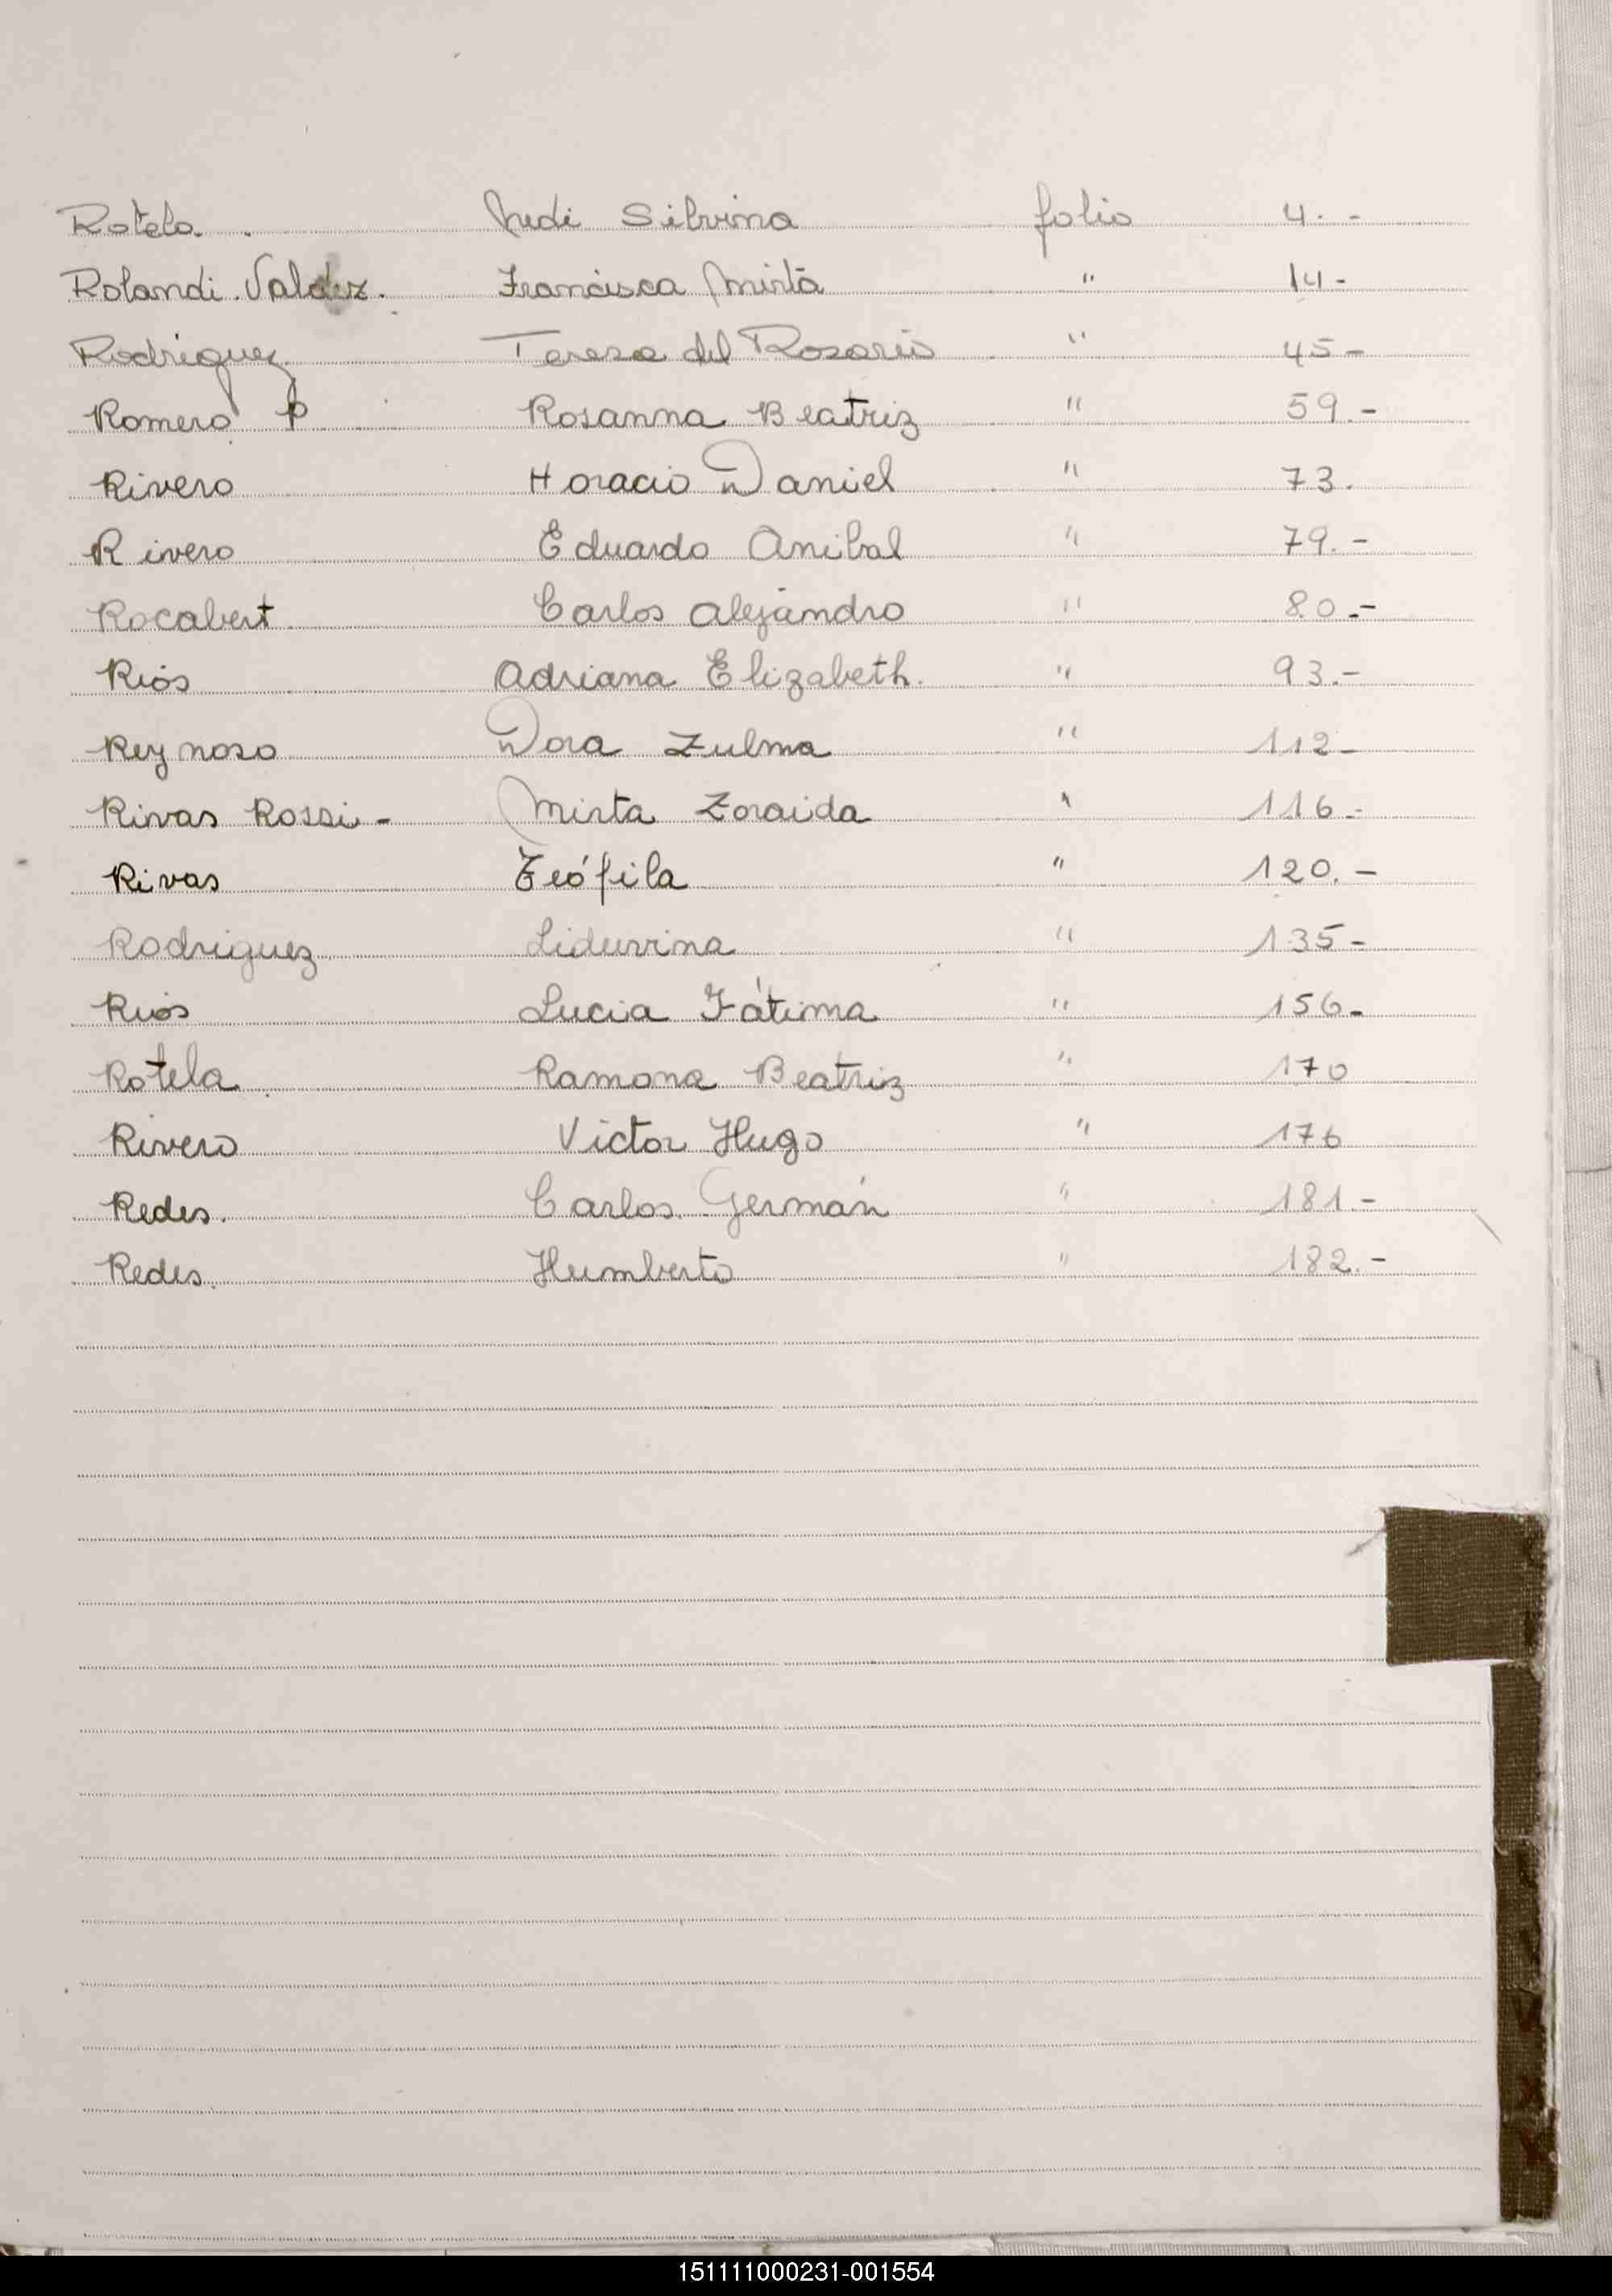 Rotela. Nedi Silvina folio 4.-
Rolandi. Valdez. Francisca Mirta " 14-
Rodriguez Teresa del Rosario " 45-
Romero P Rosanna Beatriz " 59.-
Rivero Horacio Daniel " 73.
Rivero Eduardo Anibal " 79.-
Rocabert. Carlos Alejandro " 80.-
Riós Adriana Elizabeth. " 93.-
Reynoso Dora Zulma " 112-
Rivas Rossi- Mirta Zoraida " 116-
Rivas Teófila " 120.-
Rodriguez Liduvina " 135-
Riós Lucia Fátima " 156-
Rotela. Ramona Beatriz " 170
Rivero Victor Hugo " 176
Redes. Carlos Germán " 181.-
Redes. Humberto " 182.-
151111000231-001554